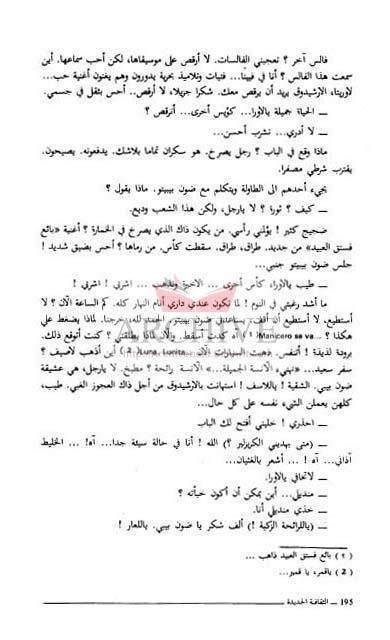 فالس آخر ؟ تعجبني الفالسات. لا أرقص على موسيقاها، لكن أحب سماعها. أين
سمعت هذا الفالس ؟ أنا في فيينا... فتيات وتلاميذ بحرية يدورون وهم يغنون أغنية حب...
لاوريتا، الارشيدوق يريد أن يرقص معك. شكرا جزيلا، لا أرقص.. أحس بثقل في جسمي.
ـــ الحياة جميلة يالاورا... كؤيس أخرى... أنرقص ؟
ـــ لا أدري... نشرب أحسن...
ماذا وقع في الباب ؟ رجل يصرخ. هو سكران تماما بلاشك. يدفعونه. يصيحون.
يقترب شرطي مصفرا.
يجيء أحدهم الى الطاولة ويتكلم مع ضون بيبيتو. ماذا يقول ؟
ـــ كيف ؟ ثورة ؟ لا يارجل، ولكن هذا الشعب وديع.
ضجيج كثير ! يؤلمني رأسي. من يكون ذاك الذي يصرخ في الخمارة ؟ أغنية «بائع
فستق العبيد» من جديد. طراق، طراق. سقطت كأس. من رماها ؟ أحس بضيق شديد !
جلس ضون بيبيتو جنبي...
ـــ طيب يالاورا، كأس أخرى... الاخيرة ونذهب... اشربي ! اشربي !
ما أشد رغبتي في النوم ! لما تكون عندي داري أنام النهار كله. كم الساعة الآن ؟ لا
أستطيع، لا أستطيع أن أقف. يساعدني ضون بيبيتو. الحمد لله، خرجنا. لماذا يضغط علي
هكذا ؟ ...Manicero se va (1) آه كدت أسقط. والآن لماذا يطلقني ؟ كنت أتوقع ذلك.
برودة لذيذة! أتنفس. ذهبت السيارات الآن ..Luna, Lunita (2) أين أذهب لأصيف ؟
سفر سعيد... «تهيء الآنسة الجميلة...» الآنسة رائحة ؟ مطبخ. لا يارجل، هي عشيقة
ضون بيبي. الشقية ! ياللاسف ! استهانت بالارشيدوق من أجل ذاك العجوز الغبي. طيب،
كلهن يعملن الشيء نفسه على كل حال...
ـــ احذري ! خليني أفتح لك الباب
ـــ (متى يهديني الكريزلير ؟) الله ! أنا في حالة سيئة جدا... آه! ... الخليط
آذاني... آه ! ... أشعر بالغثيان...
ـــ لاتخافي يالاورا.
ـــ منديلي... أين يمكن أن أكون خبأته ؟
ـــ خذي منديلي أنا.
ـــ (ياللرائحة الزكية !) ألف شكر يا ضون بيبي. ياللعار !
(1) بائع فستق العبيد ذاهب ...
(2) ياقمر، يا قمير...
195 ـــ الثقافة الجديدة
ARCHIVE